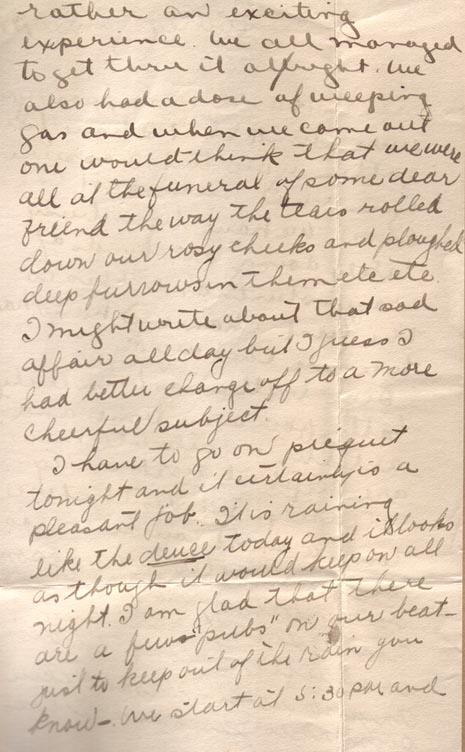 rather an exciting
experience. We all managed
to get thru it alright. We
also had a dose of weeping
gas and when we came out
one would think that we were
all at the funeral of some dear
friend the way the tears rolled
down our rosy cheeks and ploughed
deep furrows in them etc etc.
I might write about that sad
affair all day but I guess I
had better change off to a more
cheerful subject.
I have to go on picquet
tonight and it certainly is a
pleasant job. It is raining
like the deuce today and it looks
as though it would keep on all
night. I am glad that there
are a few "pubs" on our beat—
just to keep out of the rain you
know—. We start at 5:30 pm and